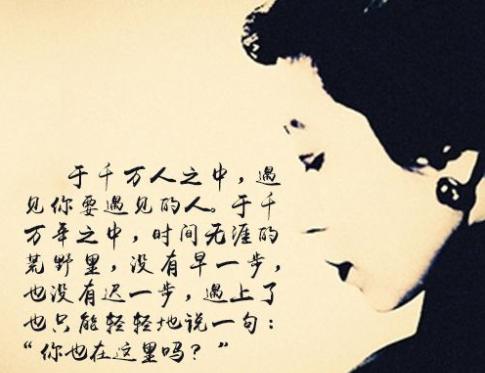 于千万人之中，遇
见你要遇见的人。于千
万年之中，时间无涯的
荒野里，没有早一步，
也没有迟一步，遇上了
也只能轻轻地说一句：
“你也在这里吗？”